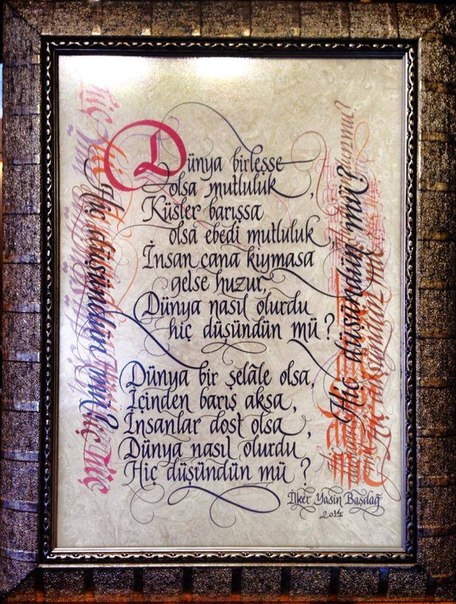 Dünya birleşse
olsa mutluluk,
Küsler barışsa
olsa ebedi mutluluk,
İnsan cana kıymasa
gelse huzur,
Dünya nasıl olurdu
hiç düşündün mü?
Dünya bir şelâle olsa,
İçinden barış aksa,
İnsanlar dost olsa,
Dünya nasıl olurdu
Hiç düşündün mü?
İlker Yasin Başdağ
2014
Hiç düşündün mü?
Hiç düşündün mü?